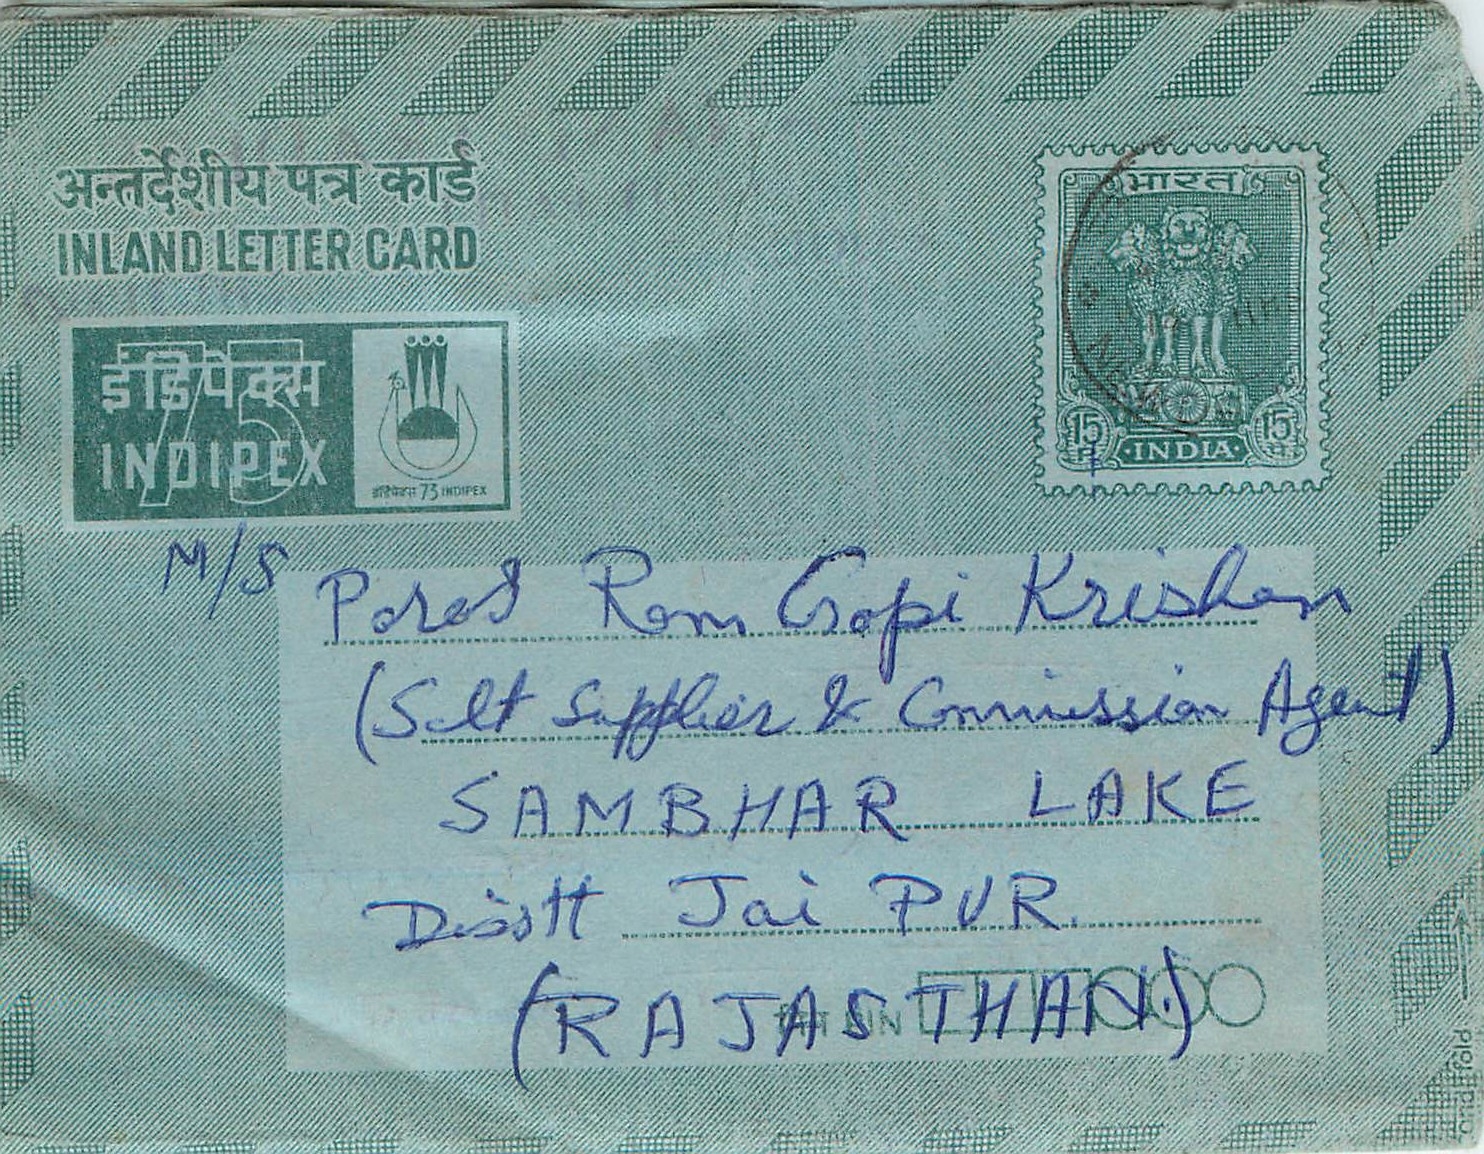 अन्तर्देशीय पत्र कार्ड
INLAND LETTER CARD
भारत
15 15
INDIA
इंडिपेक्स
75
INDIPEX
इंडिपेक्स 73 INDIPEX
M/S Paras Ram Gopi Krishan
(Salt Supplier & Commission Agent)
SAMBHAR LAKE
Disstt Jai PUR
(RAJASTHAN)
पिन PIN
2nd fold